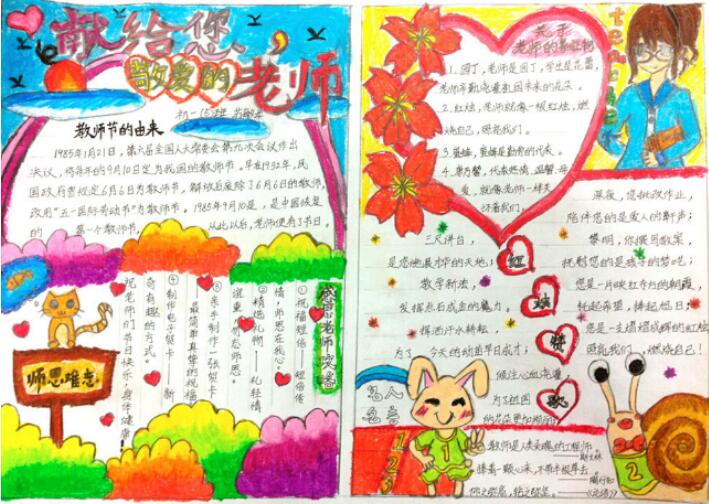 献给您,
敬爱的老师
初一(5)班
教师节的由来
1985年1月21日,第六届全国人大常委会第九次会议作出
决议,将每年的9月10日定为我国的教师节。早在1932年,民
国政府曾规定6月6日为教师节,解放后废除了6月6日的教师,
改用"五一国际劳动节"为教师节。1985年9月10是,是中国恢复
的 第一个教师节, 从此以后,老师便有了节日。
感恩老师
①祝福短信——短信传
情,师恩在我心。
②精选礼物——礼轻情
谊重,勿忘师恩。
③亲手制作一张贺卡
最简单真挚的祝福
④制作电子贺卡——新
奇有趣的方式。
祝老师们节日快乐,身体健康!
师恩难忘。
关于
老师的
1.园丁,老师是园丁,学生是花蕾,
老师辛勤浇灌祖国未来的花朵。
2.红烛,老师就像一根红烛,燃
烧自己,照亮我们。
3.蜜蜂,蜜蜂是勤劳的代表。
4.康乃馨,代表热情、温馨、母
爱,就像老师一样关
怀着我们。
teacher
三尺讲台,
是您他最中华的天地!
教学新法,
发挥点石成金的魔力。
挥洒汗水耕耘,
为了 今天的幼苗早日成才;
倾注心血浇灌,
为了祖国
的花朵更加绚丽!
红
烛
情
歌
深夜,您批改作业,
陪伴您的是爱人的鼾声;
黎明,你撰写教案,
抚慰您的是孩子的梦呓;
您是一片映红东方的朝霞,
托起希望,捧起旭日;
您是一支熠熠成辉的红烛
照亮我们, 燃烧自己!
名人
名言
1
2
3
1
教师是人类灵魂的工程师
——斯大林
捧着一颗心来,不带半根草去
——陶行知
2